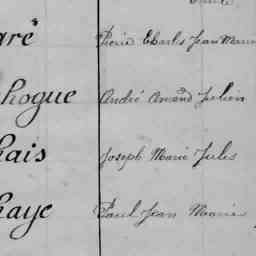 aré Pierre Charles Jean Marie
hogue André Amand Julien
hais Joseph Marie Jules
haye Paul Jean Marie